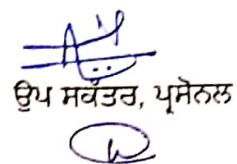 ਉਪ ਸਕੱਤਰ, ਪ੍ਰਸੋਨਲ